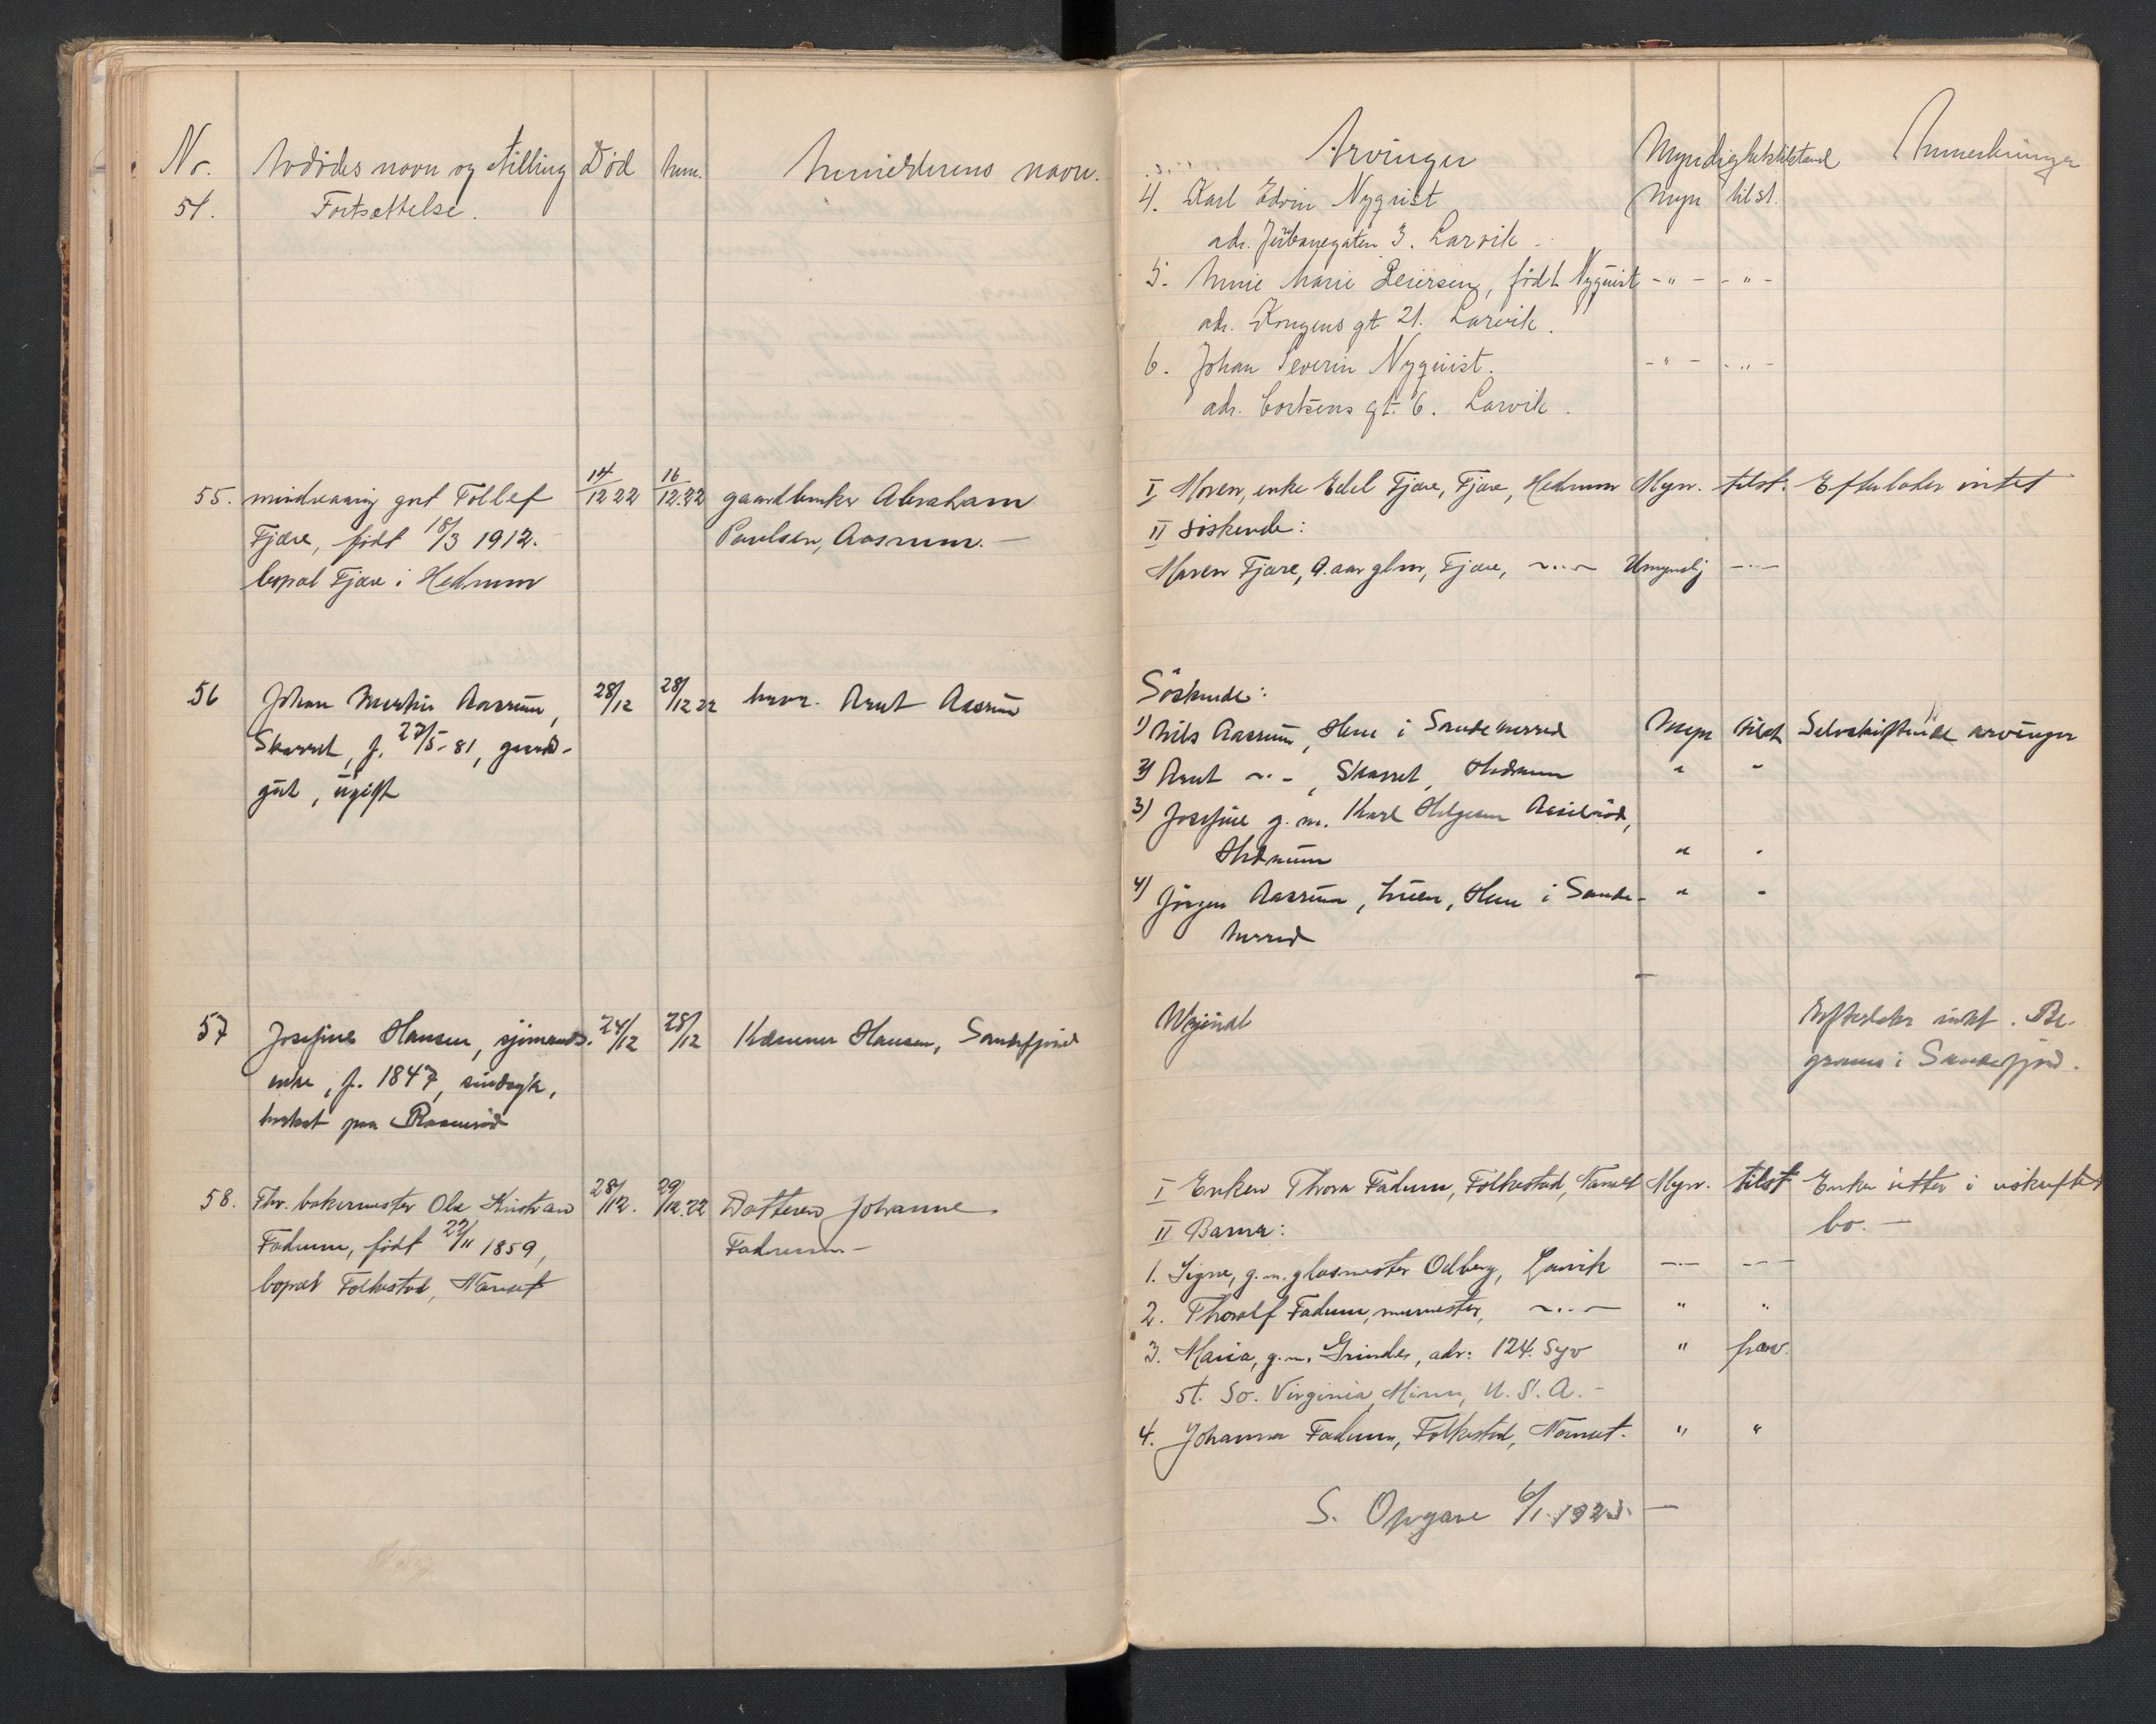 Nr. Avdødes navn og stilling Død Anm. Anmelderens navn.
54. Fortsættelse.
55. mindreaarig gut Tollef 14/12 22 16/12.22 gaardbruker Abraham
Fjære, født 18/3 1912. Paulsen, Aasrum. —
bopæl Fjære i Hedrum
56 Johan Martin Aasrum, 28/12 28/12 22 Arnt Aasrum
Skarret, f. 27/5-81, gaard-
gut, ugift
57 Josefine Hansen, sjømands- 24/12 28/12 Hansen, Sandefjord
enke, f. 1847, sindsyk,
paa
58. Fhv. bakermester Ole Kristian 28/12. 29/12.22 Datteren Johanne
Fadum, født 22/11 1859, Fadum —
bopæl Folkestad, Nanset
Arvinger Myndighetstilstand Anmerkninger
4. Karl Edvin Nyqvist Myn tilst.
adr. Jernbanegaten 3. Larvik.
5. Anne Marie Zeiersen, født Nyquist -„- -„-
adr. Kongens gt 21. Larvik.
6. Johan Severin Nyquist. -„- -„-
adr. gt. 6. Larvik.
I Moren, enke Edel Fjære, Fjære, Hedrum Myn. tilst. Efterlader intet
II søskende:
Maren Fjære, 9. aar glm, Fjære, ~„~ Umyndig -„-
Søskende:
1) Nils Aasrum, Hem i Sandeherred Myn tilst Selvskiftende arvinger
2) Arnt ~„-, Skarret, Hedrum " "
3) Josefine g. m. Karl Helgesen
Hedrum " "
4) Jørgen Aasrum, Hem i Sande- " "
herred
Efterlater intet. Be-
graves i Sandefjord.
I Enken Thora Fadum, Folkestad, Nanset Myn. tilst Enken sitter i uskiftet
II Barn: bo. —
1. Signe, g. m. glasmester Odberg, Larvik -„- -„-
2. Thoralf Fadum, murmester, ~„~ " "
3. Maria, g. m. Grinde, adr: 124. Syv " frav.
st. So. Virginia, Minn, U. S. A. -
4. Johanne Fadum, Folkestad, Nanset. " "
S. Opgave 6/1. 1923. —